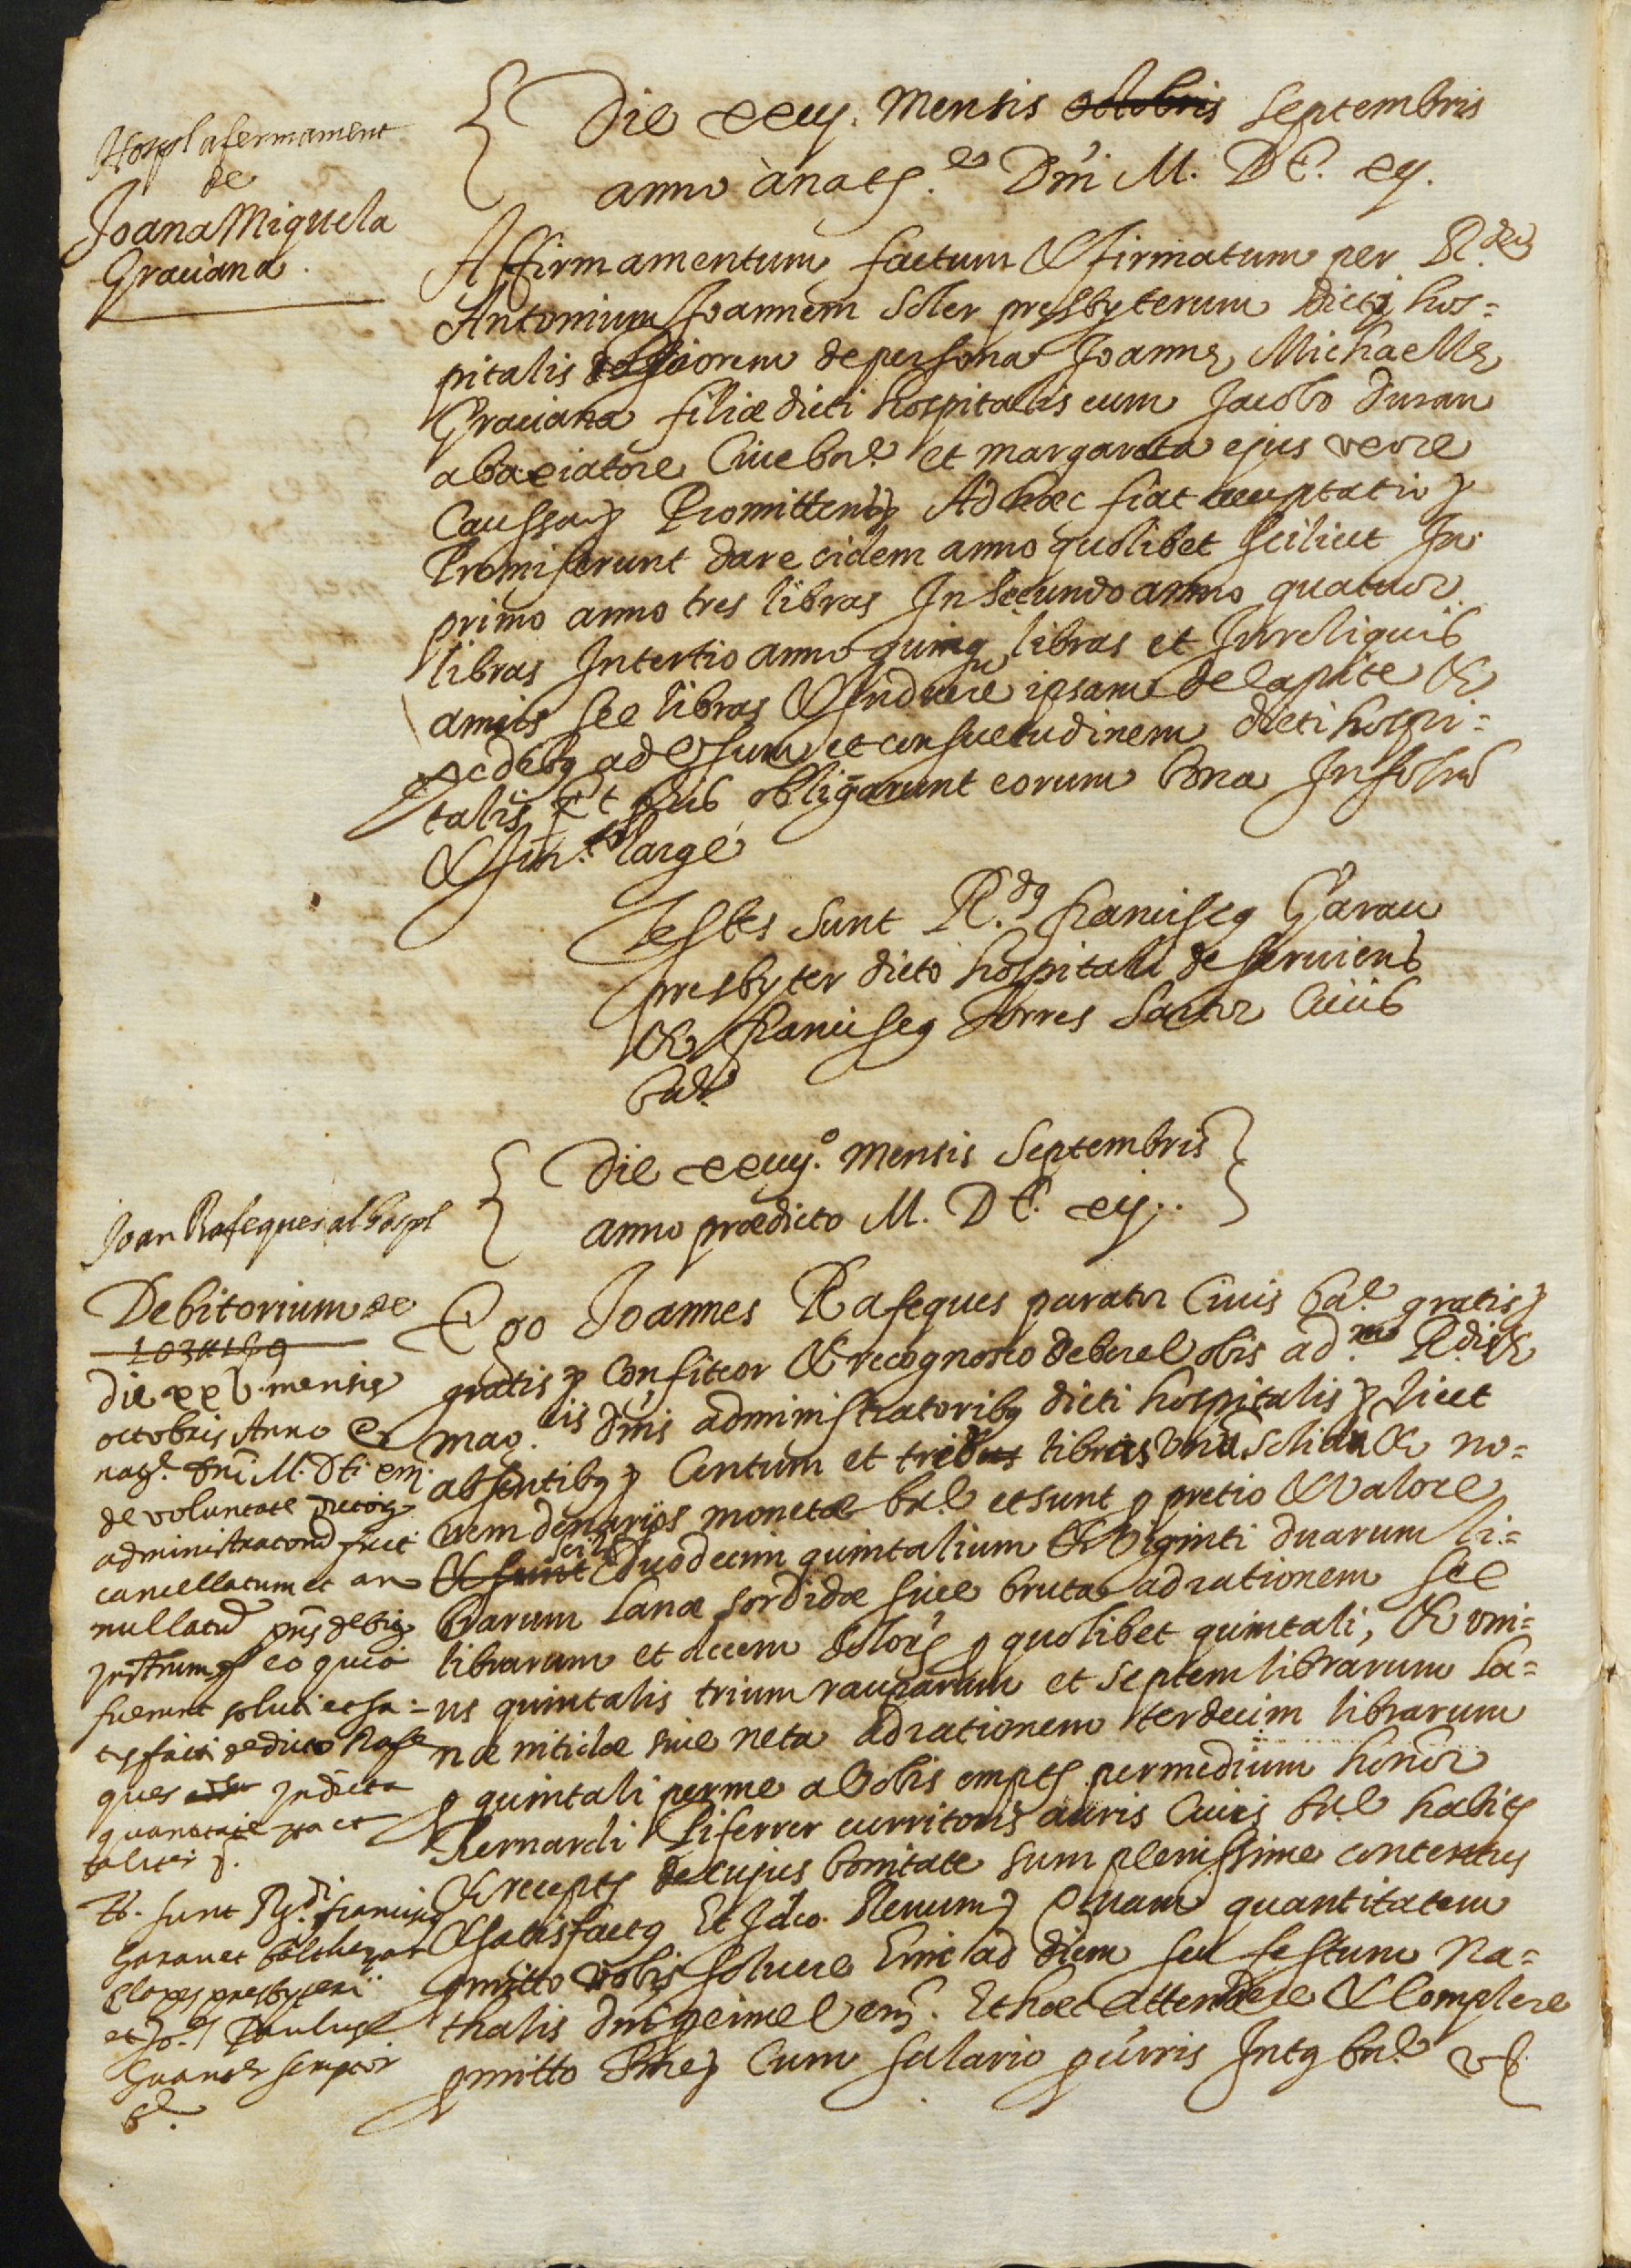 Hospl afermament
de
Joana Miquela
Graciana.
Die xxiij. mensis octobris septembris
anno à natᵗ.ᵉ Dñi M. DC. xij.
Affirmamentum factum & firmatum per R.ᵈᵘᵐ
Antonium Joannem Soler presbyterum dicti hos=
pitalis de persona Joannæ Michaellæ
Graciana filiæ dicti hospitalis cum Jacobo Duran
abaxiatore Cive barᵉ. et margarita ejus uxore
Caussa Promitten Ad hæc fiat acceptatio
Promiserunt dare eidem anno quolibet scilicet In
primo anno tres libras In secundo anno quatuor
libras In tertio anno quinq libras et In reliquis
annis sex libras & Induere ipsam de capite &
pedibq ad Usum et consuetudinem dicti hospi=
talis Et obligarunt eorum bona In solᵐ
& large
Testes sunt R.ᵈq franciscq Garau
presbyter dicto hospitali de serviens
& franciscq Torres Sartor Civis
barᵉ.
Die xxiiij.º mensis Septembris
anno prædicto M. DC. xij.
Joan Rafeques al hospl
Debitorium de
103 ₶ 1 ſ 9
die xxv mensis
octobris Anno
natᵉ. Dñi M. DC xiij.
de voluntate dictorꝫ
administratorũ fuit
cancellatum et an
nullatũ pñs debiq
Instrumᵗ eo quia
fuerunt soluti et sa=
tisfacti de dicto Rafe
ques Indicta
quantitate
taliter
Tˢ. sunt Rᵈⁱ. franciscq
Garau et balthezar
Clapes presbyteri
et Jo.ˢ Paulus
scriptor
bᵉ.
Ego Joannes Rafeques parator Civis baᵉ. gratis
gratis Confiteor & recognosco debere Vobis ad.ᵐ R.dis &
mag.ᶜⁱˢ Dñis administratoribq dicti hospitalis licet
absentibq Centum et tribus libris unũ solidũ & no=
vem denarijs monetæ barᵉ et sunt ꝑ pretio & Valore
& sunt scilᵗ Duodecim quintalium & Viginti duarum li=
brarum Lanæ sordidæ sive bruta ad rationem sex
librarum et decem solorꝫ ꝑ quolibet quintali, & uni=
us quintalis trium rauparum et septem librarum La=
næ nitidæ sive neta ad rationem terdecim librarum
ꝑ quintali per me a Vobis empts per medium honor
Bernardi Piferrer curritoris auris Civis barᵉ habits
& recepts de cujus bonitate sum plenissime contentus
& satisfactq Et Ideo Renun Quam quantitatem
ꝑmitto Vobis solvere hinc ad diem seu festum Na=
thalis Dñi ꝑxime Ven. Et hæc attendere & Complere
ꝑmitto Sine Cum salario ꝑcurris Intq barᵉ